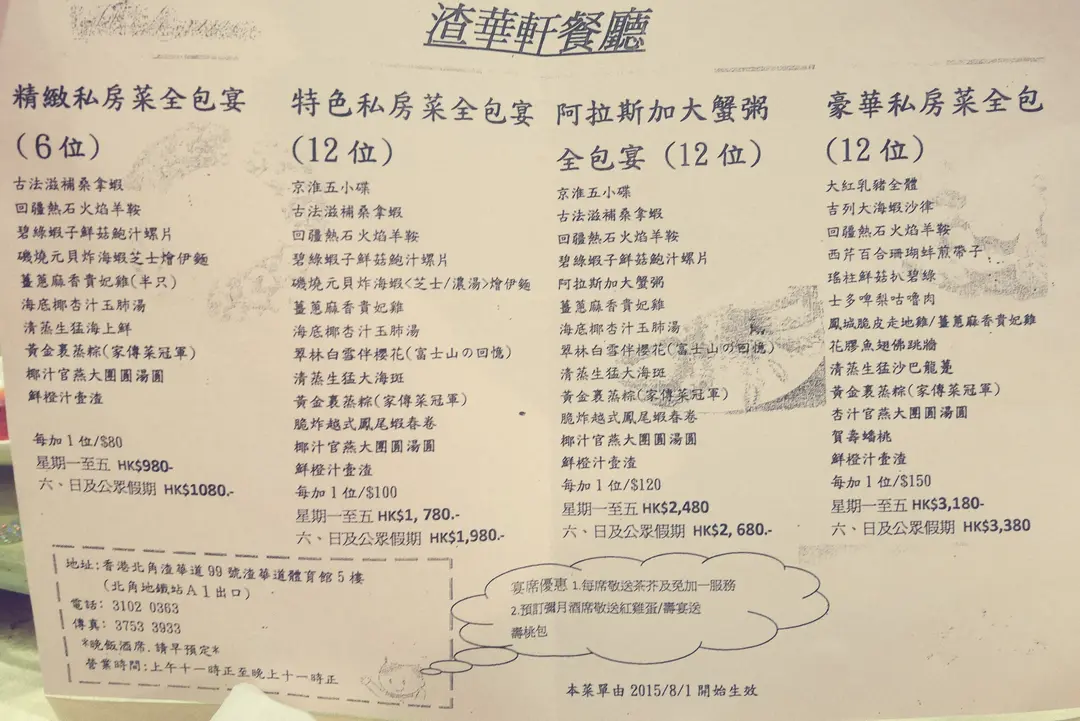 渣華軒餐廳
精緻私房菜全包宴
(6位)
古法滋補桑拿蝦
回疆熱石火焰羊鞍
碧綠蝦子鮮菇鮑汁螺片
磯燒元貝炸海蝦芝士燴伊麵
薑蔥麻香貴妃雞(半只)
海底椰杏汁玉肺湯
清蒸生猛海上鮮
黃金裹蒸粽(家傳菜冠軍)
椰汁官燕大團圓湯圓
鮮橙汁壹渣
每加1位/$80
星期一至五 HK$980-
六、日及公眾假期 HK$1080.-
特色私房菜全包宴
(12位)
京淮五小碟
古法滋補桑拿蝦
回疆熱石火焰羊鞍
碧綠蝦子鮮菇鮑汁螺片
磯燒元貝炸海蝦<芝士/濃湯>燴伊麵
薑蔥麻香貴妃雞
海底椰杏汁玉肺湯
翠林白雪伴櫻花(富士山の回憶)
清蒸生猛大海斑
黃金裹蒸粽(家傳菜冠軍)
脆炸越式鳳尾蝦春卷
椰汁官燕大團圓湯圓
鮮橙汁壹渣
每加1位/$100
星期一至五 HK$1,780.-
六、日及公眾假期 HK$1,980.-
阿拉斯加大蟹粥
全包宴 (12位)
京淮五小碟
古法滋補桑拿蝦
回疆熱石火焰羊鞍
碧綠蝦子鮮菇鮑汁螺片
阿拉斯加大蟹粥
薑蔥麻香貴妃雞
海底椰杏汁玉肺湯
翠林白雪伴櫻花(富士山の回憶)
清蒸生猛大海斑
黃金裹蒸粽(家傳菜冠軍)
脆炸越式鳳尾蝦春卷
椰汁官燕大團圓湯圓
鮮橙汁壹渣
每加1位/$120
星期一至五 HK$2,480
六、日及公眾假期 HK$2,680.-
豪華私房菜全包
(12位)
大紅乳豬全體
吉列大海蝦沙律
回疆熱石火焰羊鞍
西芹百合珊瑚蚌煎帶子
瑤柱鮮菇扒碧綠
士多啤梨咕嚕肉
鳳城脆皮走地雞/薑蔥麻香貴妃雞
花膠魚翅佛跳牆
清蒸生猛沙巴龍躉
黃金裹蒸粽(家傳菜冠軍)
杏汁官燕大團圓湯圓
賀壽蟠桃
鮮橙汁壹渣
每加1位/$150
星期一至五 HK$3,180-
六、日及公眾假期 HK$3,380
地址:香港北角渣華道99號渣華道體育館5樓
(北角地鐵站A1出口)
電話: 3102 0363
傳真: 3753 3933
*晚飯酒席.請早預定*
營業時間:上午十一時正至晚上十一時正
宴席優惠 1.每席敬送茶芥及免加一服務
2.預訂彌月酒席敬送紅雞蛋/壽宴送
壽桃包
本菜單由2015/8/1開始生效